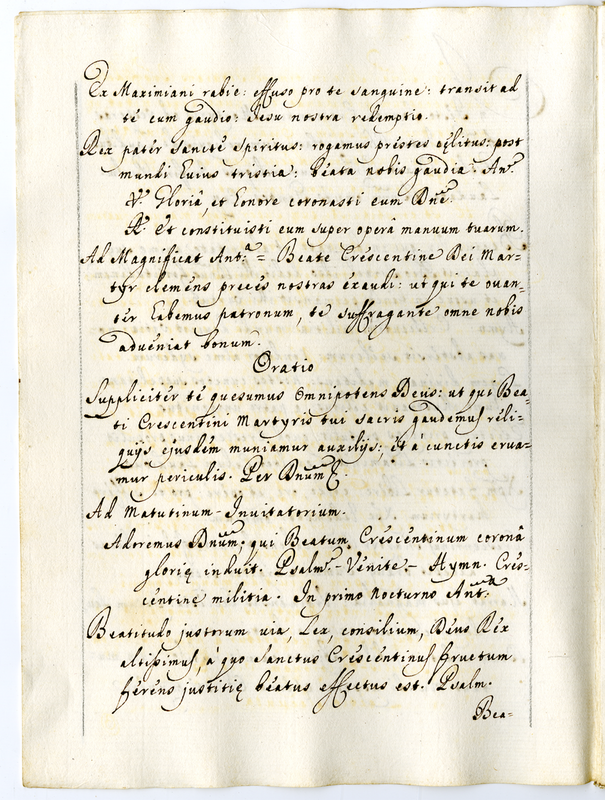 Ex Maximiani rabie: effuso pro te sanguine: transit ad
té cum gaudio: Jesu nostra redemptio.
Rex patér sancté spiritus: rogamus préstes cęlitus: post
mundi huius tristia: béata nobis gaudia. Anª.
V. Gloriâ, et honore coronasti eum Dne͂.
R. Et constituisti eum super operâ manuum tuarum.
Ad Magnificat Ant.ª = Beate Crescentine Dei Mar=
tyr clemens precés nostras éxaudi: ut qui te ouan=
tér habemus patronum, te suffragante omne nobis
aduéniat bonum.
Oratio
Supplicitér té quesumus omnipotens Deus: ut qui Bea=
ti Crescentini Martyris tui sacris gaudemus réli=
quijs éjusdém muniamur auxilijs: Et à cunctis erua=
mur periculis. Per Dnum &.
Ad Matutinum - Inuitatorium.
Adoremus Dnum; qui Beatum Crescentinum coronâ
glorię induit. Psalm.s - Vénite - Hymn. Cres=
céntinę militia. In primo Nocturno Ant.ª
Beatitudo justorum uia, Lex, consilium, Déus Réx
altissimus, à quo Sanctus Créscéntinus fructum
féréns justitię béatus effectus est. Psalm.
Bea=